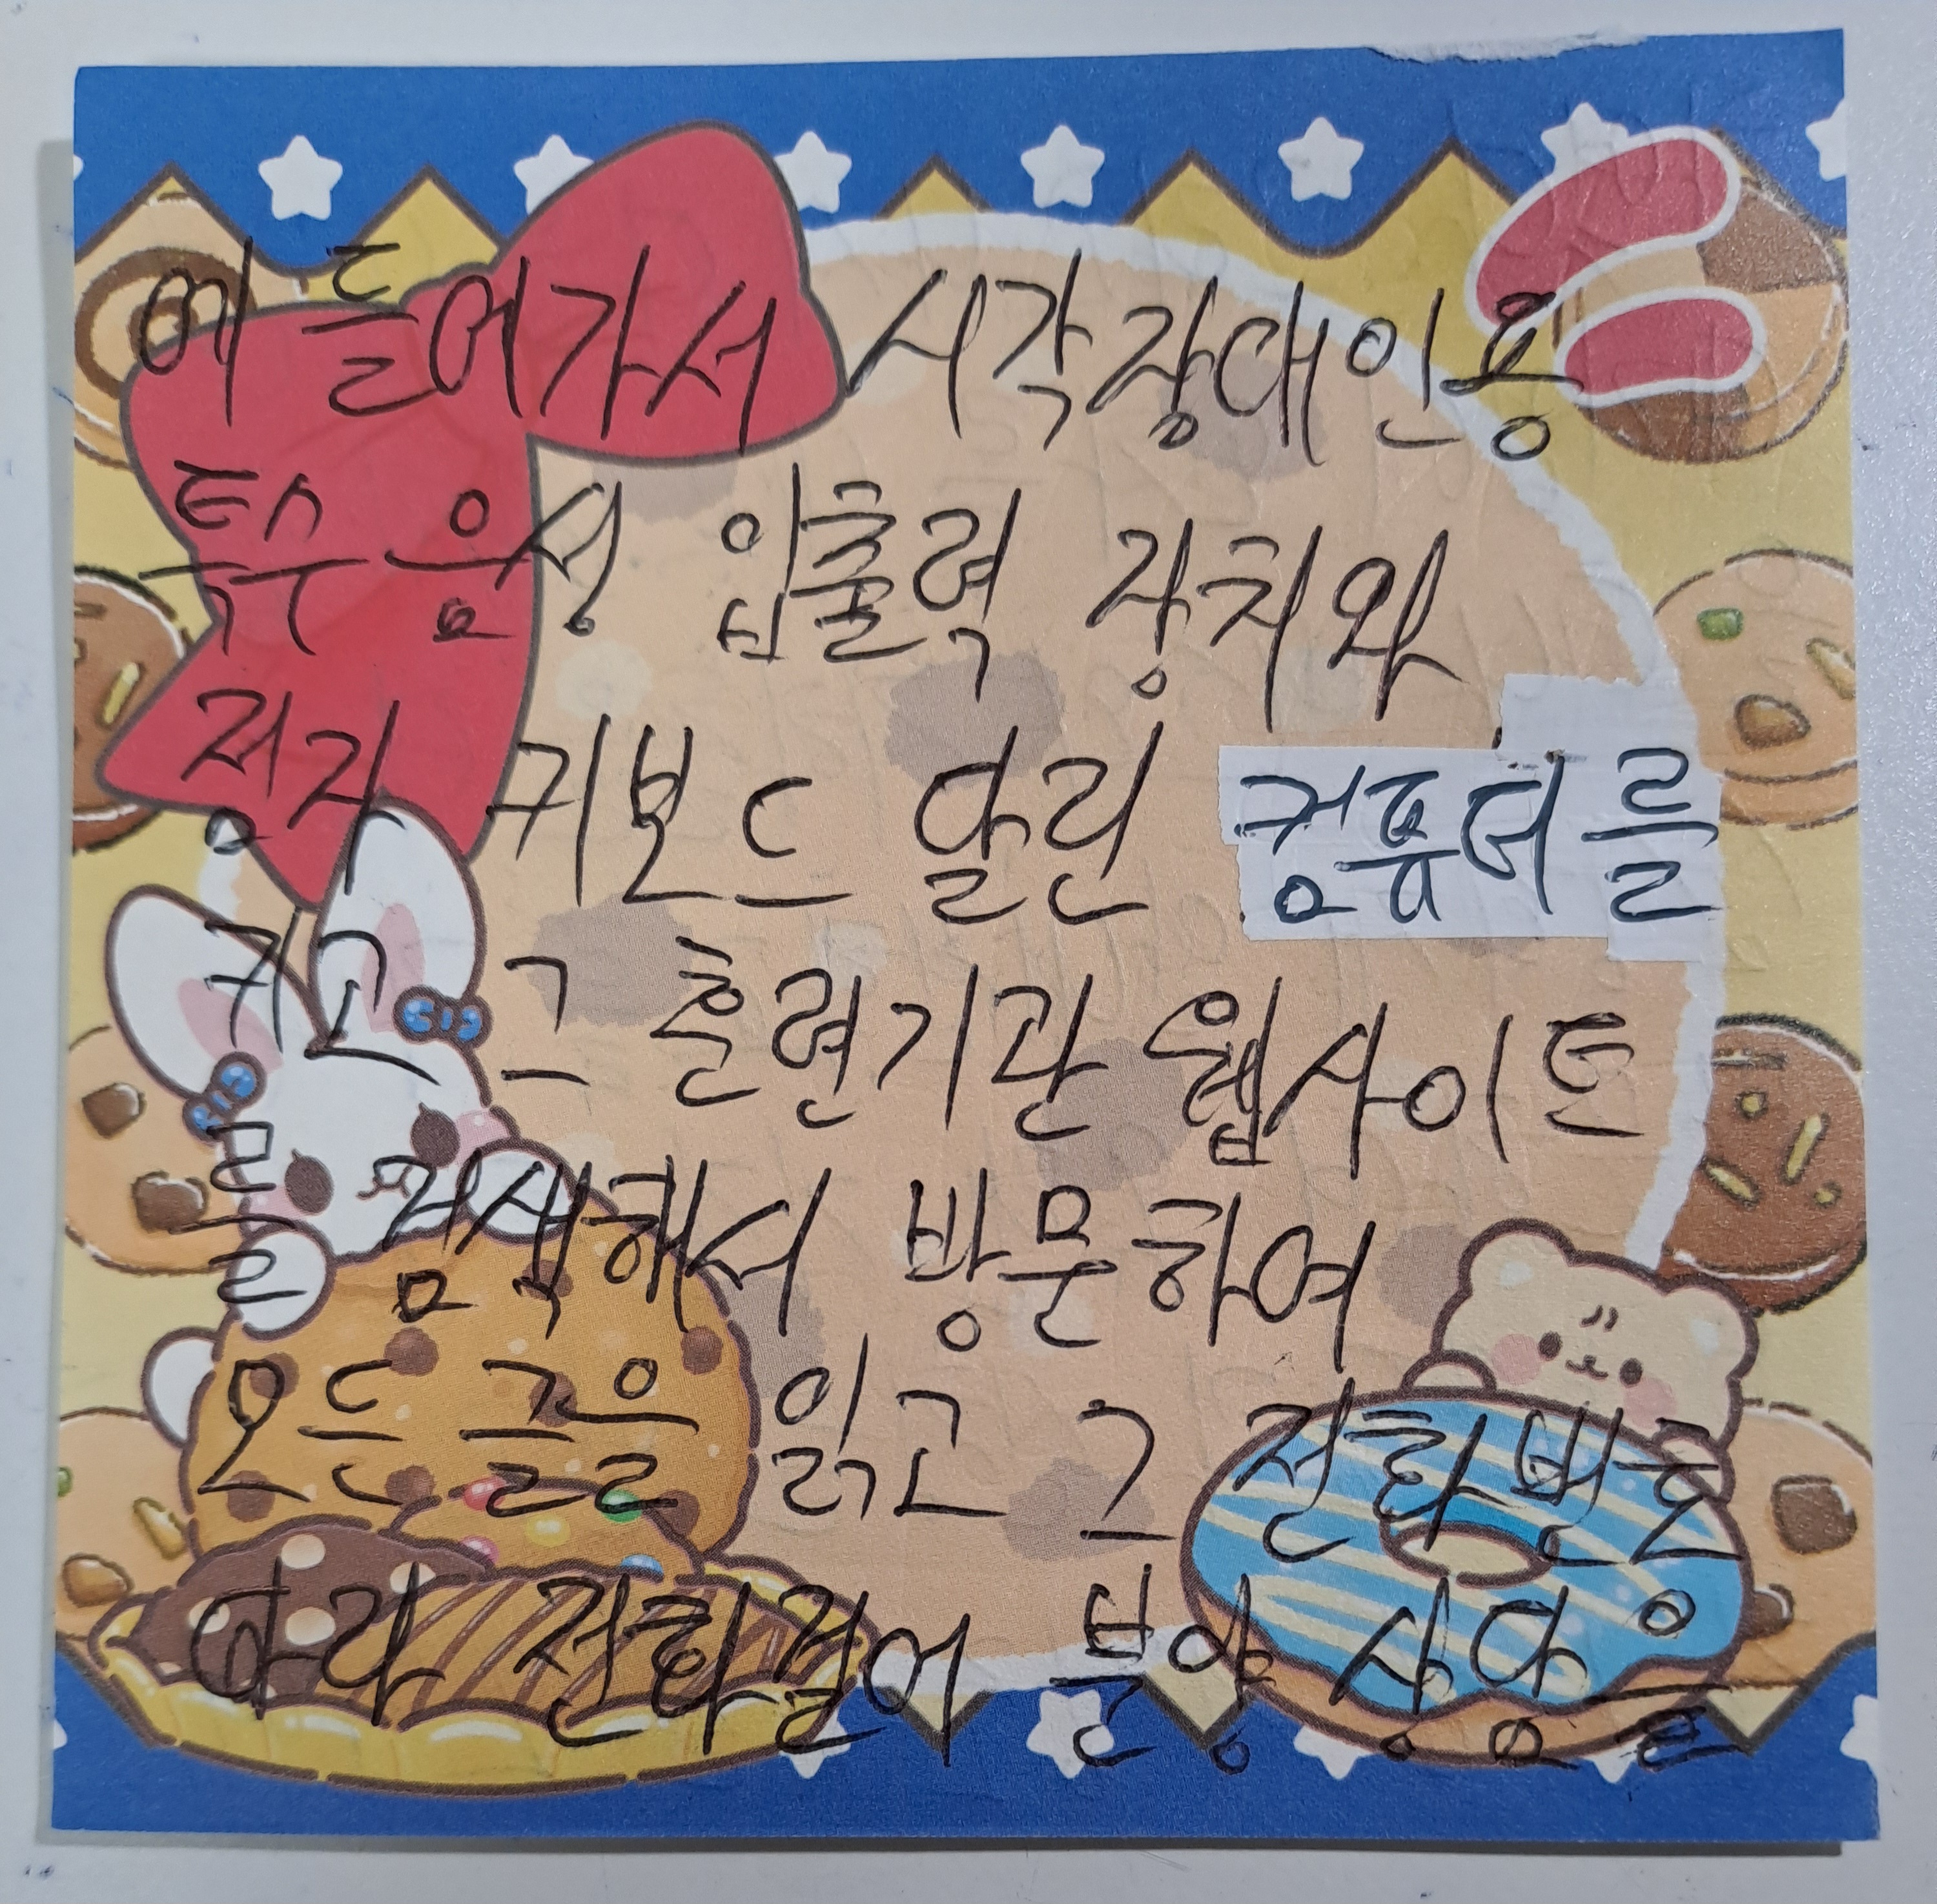 에 들어가서 시각장애인용
특수 음성 입출력 장치와
점자 키보드 달린 컴퓨터를
키고 그 훈련기관 웹사이트
를 검색해서 방문하여
모든 글을 읽고 그 전화번호
따라 전화걸어 분양 상담을